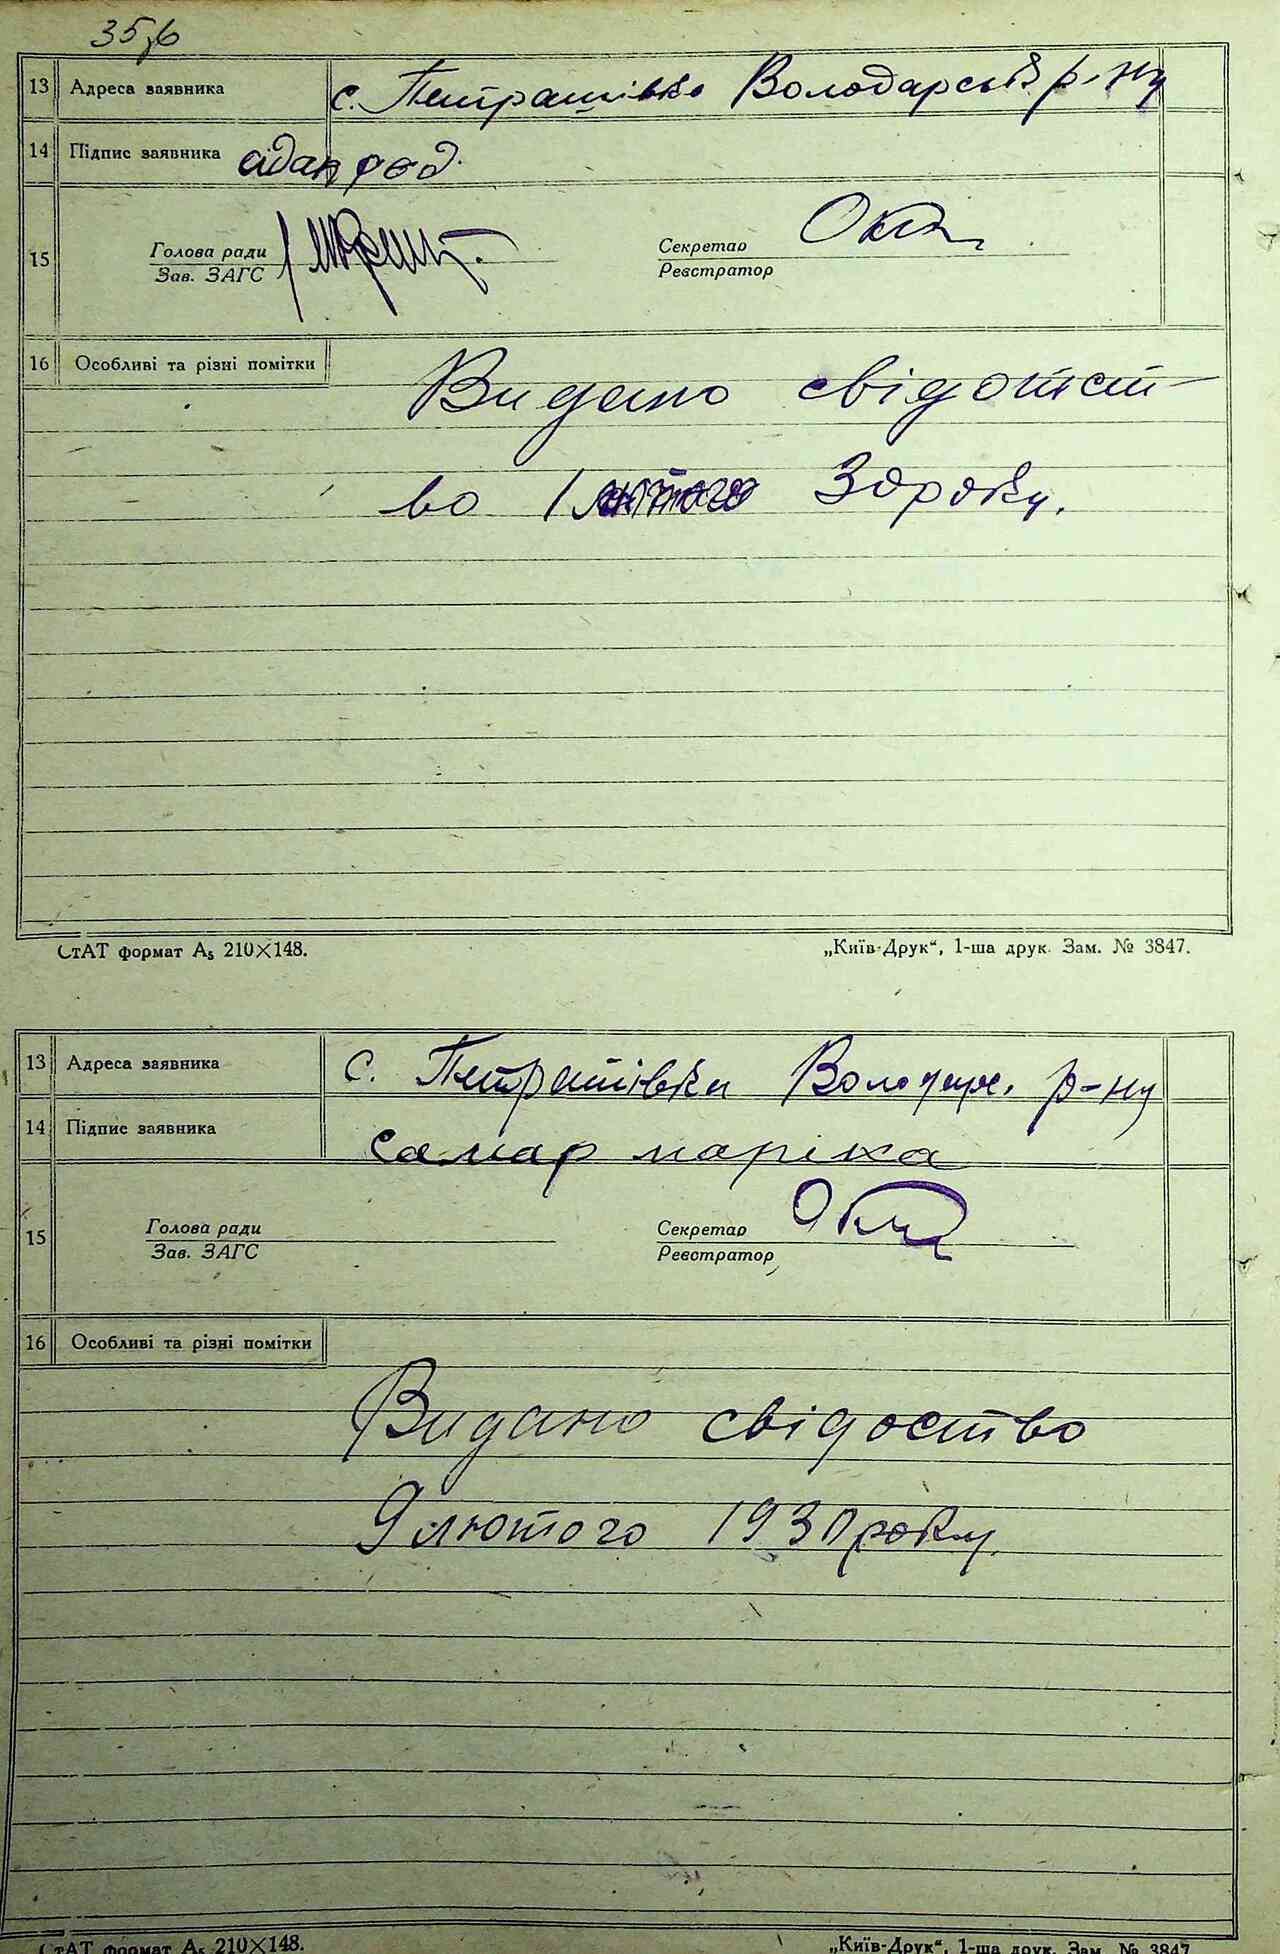 13 Адреса заявника с. Петрашівка Володарськ. р-ну
14 Підпис заявника
15 Голова ради Секретар
Зав. ЗАГС Реєстратор
16 Особливі та різні помітки
Видано свідотст-
во 1 лютого 30 року.
СтАТ формат А₅ 210×148. „Київ-Друк“, 1-ша друк. Зам. № 3847.
13 Адреса заявника с. Петрашівка Володарс. р-ну
14 Підпис заявника самар маріка
15 Голова ради Секретар
Зав. ЗАГС Реєстратор
16 Особливі та різні помітки
Видано свідоство
9 лютого 1930 року.
СтАТ формат А₅ 210×148. „Київ-Друк“, 1-ша друк. Зам. № 3847